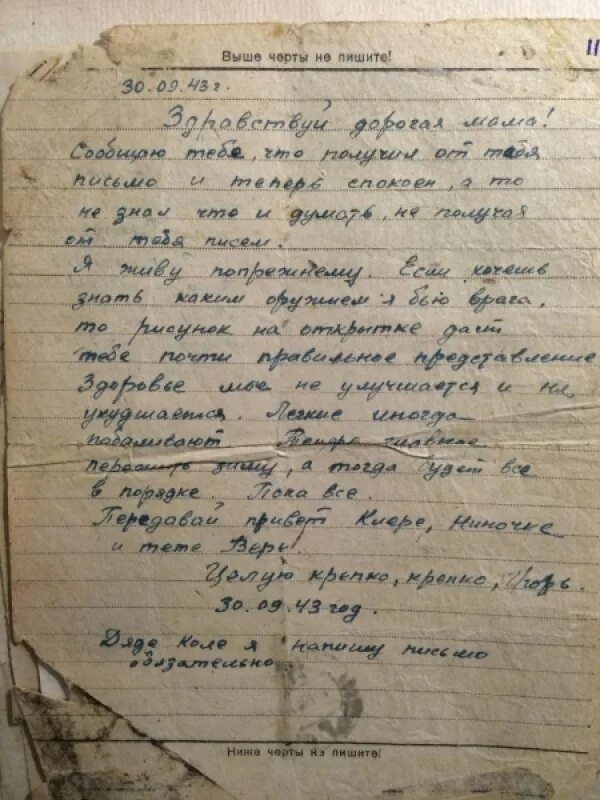 Выше черты не пишите!
11
30.09.43 г.
Здравствуй дорогая мама!
Сообщаю тебе, что получил от тебя
письмо и теперь спокоен, а то
не знал что и думать, не получая
от тебя писем.
Я живу попрежнему. Если хочешь
знать каким оружием я бью врага,
то рисунок на открытке даст
тебе почти правильное представление
Здоровье мое не улучшается и не
ухудшается. Легкие иногда
побаливают Теперь главное
пережить зиму, а тогда будет все
в порядке. Пока все.
Передавай привет Клере, Ниночке
и тете Вере!
Целую крепко, крепко, Игорь.
30.09.43 год.
Дяде Коле я напишу письмо
обязательно
Ниже черты не пишите!